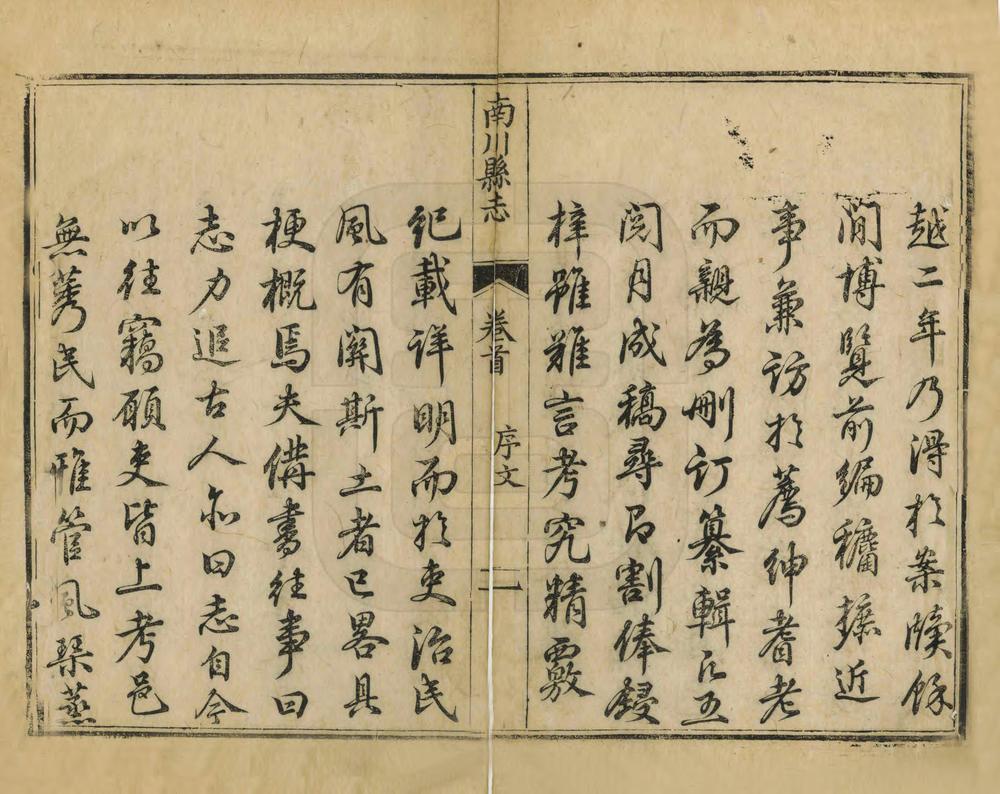 越二年乃得於案牘餘
閒博覽前編穭摭近
事兼訪於薦紳耆老
而親為刪訂纂輯凡五
閱月成稿尋即割俸鋟
梓雖難言考究精覈
南川縣志 卷首 序文 二
紀載詳明而於吏治民
風有關斯土者已畧具
梗概焉夫備書往事曰
志力追古人亦曰志自今
以往竊願吏皆上考邑
無莠民而雅管風琴蒸